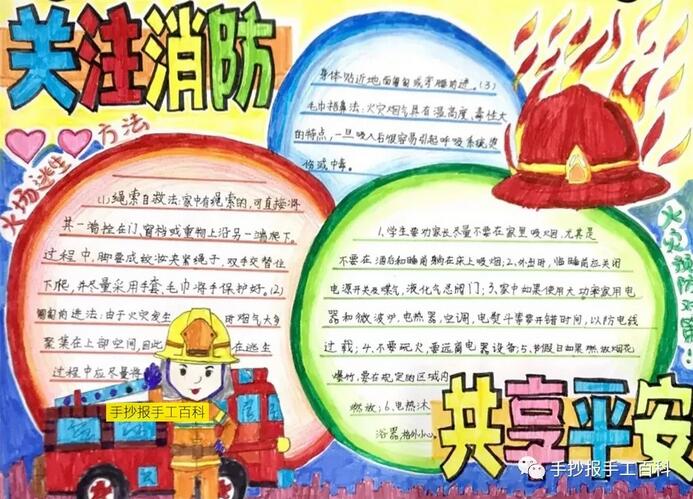 关注消防
火场逃生方法
(1)绳索自救法:家中有绳索的,可直接将
其一端拴在门、窗档或重物上沿另一端爬下。
过程中,脚要成绞状夹紧绳子,双手交替往
下爬,并尽量采用手套、毛巾将手保护好。(2)
匍匐前进法:由于火灾发生时烟气大多
聚集在上部空间,因此在逃生
过程中应尽量将
身体贴近地面匍匐或弯腰前进。(3)
毛巾捂鼻法:火灾烟气具有温高度、毒性大
的特点,一旦吸入后很容易引起呼吸系统烫
伤或中毒。
火灾预防对策:
1.学生要劝家长尽量不要在家里吸烟,尤其是
不要在酒后和睡前躺在床上吸烟;2、外出时,临睡前应关闭
电源开关及煤气,液化气总阀门;3、家中如果使用大功率家用电
器和微波炉、电热器、空调、电熨斗等要开错时间,以防电线
过载;4、不要玩火,要远离电器设备;5、节假日如果燃放烟花
爆竹,要在规定的区域内
燃放;6、电热沐
浴器,格外小心。
共享平安
手抄报手工百科
手抄报手工百科